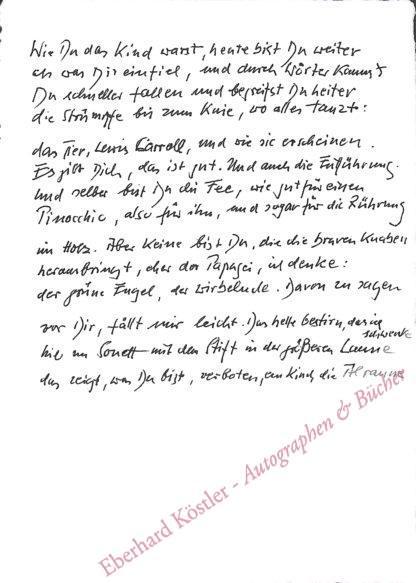 Wie Du das Kind warst, heute bist Du weiter
als was Dir einfiel, und durch Wörter kannst
Du schneller fallen und begreifst Du heiter
die Strümpfe bis zum Knie, wo alles tanzt:
das Tier, Lewis Carroll, und wie sie erscheinen.
Es gibt Dich, das ist gut. Und auch die Entführung.
Und selber bist Du die Fee, wie gut für einen
Pinocchio, also für ihn, und sogar für die Rührung
im Holz. Aber keine bist Du, die die braven Knaben
herausbringt, eher der Papagei, ich denke:
der grüne Engel, der wirbelnde. Davon zu sagen
vor Dir, fällt mir leicht. Das helle Gestirn, das ich
schwenke
hie im Sonett mit dem Stift in der größeren Laune
das zeigt, was Du bist, verboten, ein Kind, die Alraune
Eberhard Köstler - Autographen & Bücher